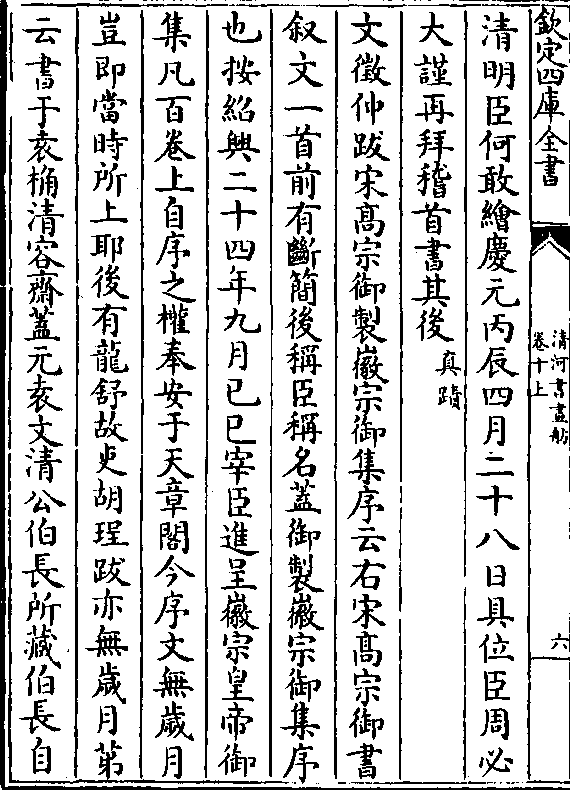 欽定四庫全書
清河書畫舫
卷十上
六
清明臣何敢繪慶元丙辰四月二十八日具位臣周必
大謹再拜稽首書其後真蹟
文徵仲跋宋髙宗御製徽宗御集序云右宋髙宗御書
叙文一首前有斷簡後稱臣稱名蓋御製徽宗御集序
也按紹興二十四年九月已巳宰臣進呈徽宗皇帝御
集凡百卷上自序之權奉安于天章閣今序文無歲月
豈即當時所上耶後有龍舒故吏胡珵跋亦無歲月第
云書于袁桷清容齋蓋元袁文清公伯長所藏伯長自